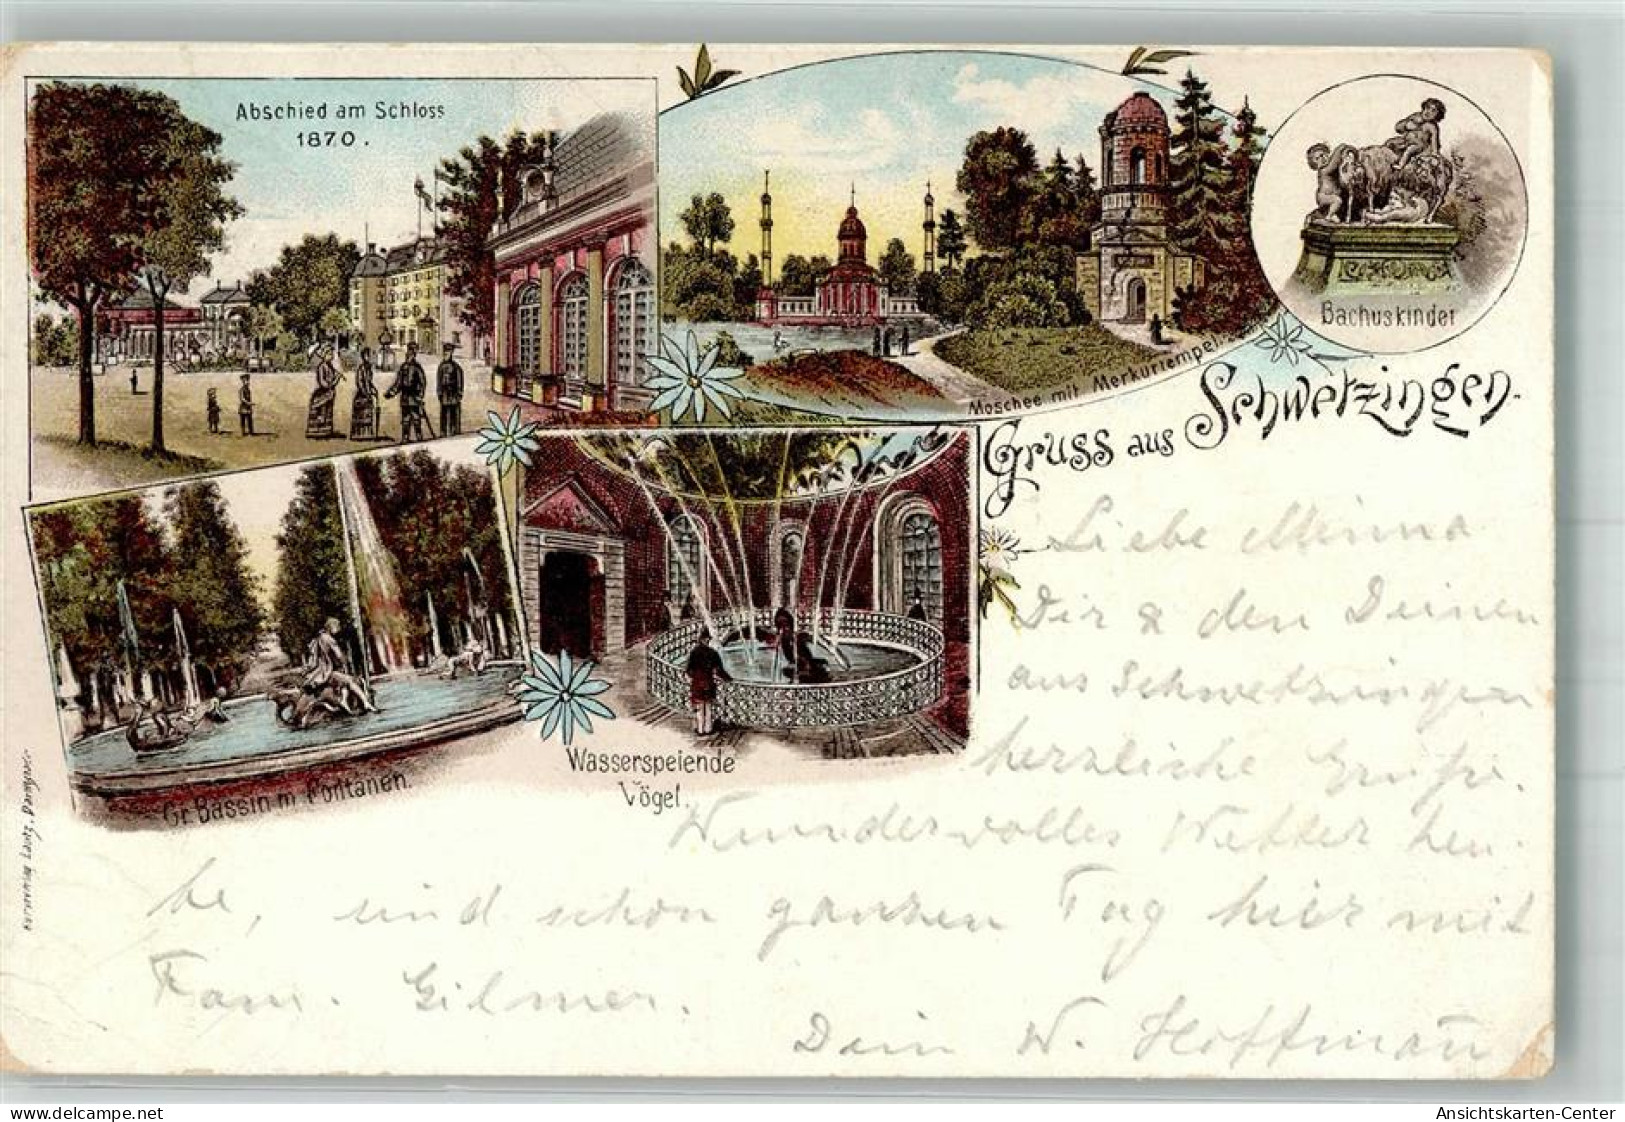 Abschied am Schloss
1870.
Moschee mit Merkurtempel.
Bachuskinder
Gruss aus Schwetzingen.
Gr. Bassin m. Fontänen.
Wasserspeiende
Vögel.
Lautz, Darmstadt
Liebe Minna
Dir & den Deinen
aus Schwetzingen
herzliche Grüße.
Wundervolles Wetter heu-
te, sind schon ganzen Tag hier mit
Fam. Gilmer.
Dein W. Hoffmann
delcampe.net
Ansichtskarten-Center